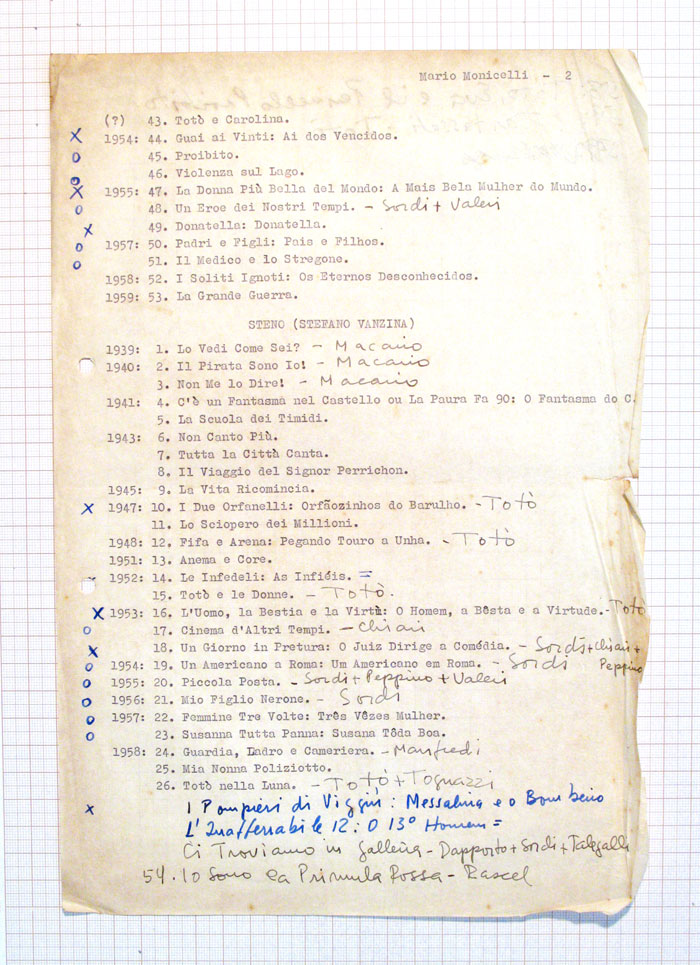 Mario Monicelli - 2
(?) 43. Totò e Carolina.
X 1954: 44. Guai ai Vinti: Ai dos Vencidos.
o 45. Proibito.
o 46. Violenza sul Lago.
X 1955: 47. La Donna Più Bella del Mondo: A Mais Bela Mulher do Mundo.
o 48. Un Eroe dei Nostri Tempi. - Sordi + Valeri
x 49. Donatella: Donatella.
o 1957: 50. Padri e Figli: Pais e Filhos.
o 51. Il Medico e lo Stregone.
1958: 52. I Soliti Ignoti: Os Eternos Desconhecidos.
1959: 53. La Grande Guerra.
STENO (STEFANO VANZINA)
1939: 1. Lo Vedi Come Sei? - Macario
1940: 2. Il Pirata Sono Io! - Macario
3. Non Me lo Dire! - Macario
1941: 4. C'è un Fantasma nel Castello ou La Paura Fa 90: O Fantasma do C.
5. La Scuola dei Timidi.
1943: 6. Non Canto Più.
7. Tutta la Città Canta.
8. Il Viaggio del Signor Perrichon.
1945: 9. La Vita Ricomincia.
x 1947: 10. I Due Orfanelli: Orfãozinhos do Barulho. - Totò
11. Lo Sciopero dei Millioni.
1948: 12. Fifa e Arena: Pegando Touro a Unha. - Totò
1951: 13. Anema e Core.
1952: 14. Le Infedeli: As Infiéis. =
15. Totò e le Donne. - Totò.
X 1953: 16. L'Uomo, la Bestia e la Virtù: O Homem, a Bêsta e a Virtude. - Totò
o 17. Cinema d'Altri Tempi. - Chiari
x 18. Un Giorno in Pretura: O Juiz Dirige a Comédia. - Sordi + Chiari + Peppino
o 1954: 19. Un Americano a Roma: Um Americano em Roma. - Sordi
o 1955: 20. Piccola Posta. - Sordi + Peppino + Valeri
o 1956: 21. Mio Figlio Nerone. - Sordi
o 1957: 22. Femmine Tre Volte: Três Vêzes Mulher.
o 23. Susanna Tutta Panna: Susana Tôda Boa.
1958: 24. Guardia, Ladro e Cameriera. - Manfredi
25. Mia Nonna Poliziotto.
26. Totò nella Luna. - Totò + Tognazzi
x I Pompieri di Viggiù: Messalina e o Bombeiro
L'Inafferrabile 12: O 13º Homem =
Ci Troviamo in Galleria - Dapporto + Sordi + Talegalli
54. Io Sono la Primula Rossa - Rascel